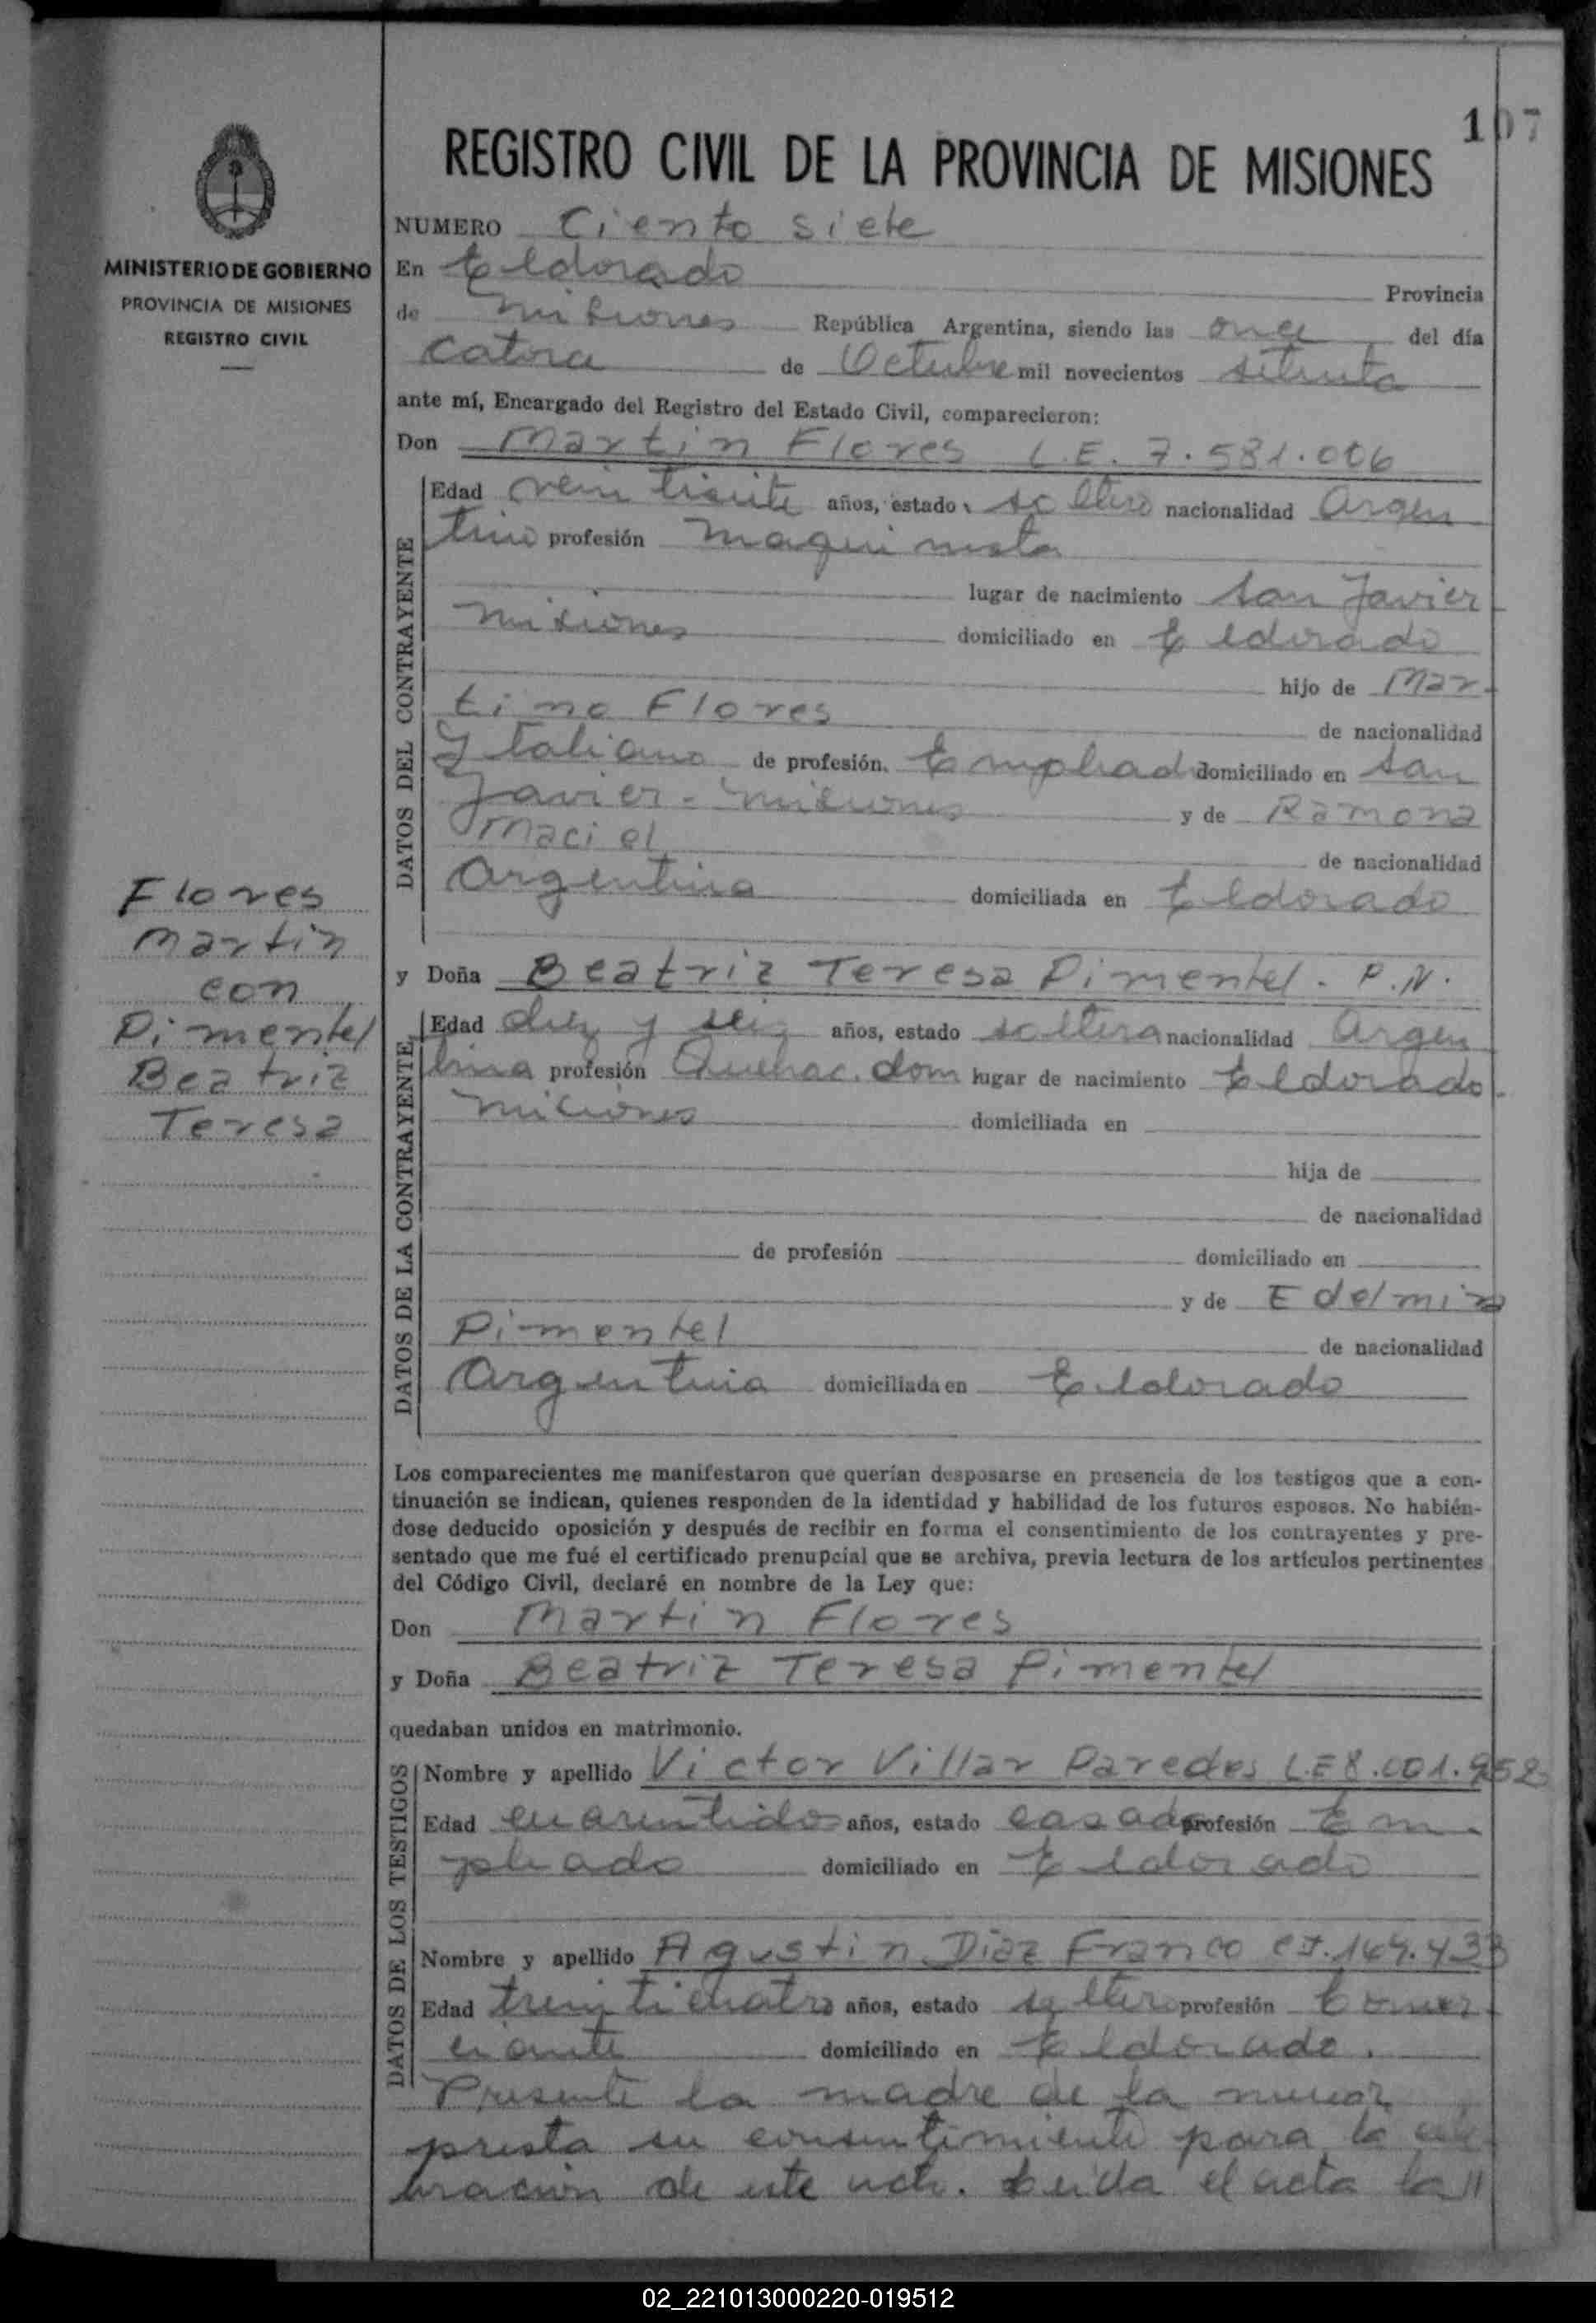 107
REGISTRO CIVIL DE LA PROVINCIA DE MISIONES
MINISTERIO DE GOBIERNO
PROVINCIA DE MISIONES
REGISTRO CIVIL
NUMERO Ciento siete
En Eldorado Provincia
de Misiones República Argentina, siendo las once del día
catorce de Octubre mil novecientos setenta
ante mí, Encargado del Registro del Estado Civil, comparecieron:
Don Martin Flores L.E. 7.581.006
DATOS DEL CONTRAYENTE
Edad años, estado soltero nacionalidad Argen
tino profesión maquinista
lugar de nacimiento San Javier
Misiones domiciliado en Eldorado
hijo de Mar-
tino Flores de nacionalidad
Ytaliano de profesión. Empleado domiciliado en San
Javier - Misiones y de Ramona
Maciel de nacionalidad
Argentina domiciliada en Eldorado
Flores
Martin
con
Pimentel
Beatriz
Teresa
y Doña Beatriz Teresa Pimentel. P.N.
DATOS DE LA CONTRAYENTE
Edad diez y seis años, estado soltera nacionalidad Argen
tina profesión Quehac. dom lugar de nacimiento Eldorado
Misiones domiciliada en
hija de
de nacionalidad
de profesión domiciliado en
y de Edelmira
Pimentel de nacionalidad
Argentina domiciliada en Eldorado
Los comparecientes me manifestaron que querían desposarse en presencia de los testigos que a con-
tinuación se indican, quienes responden de la identidad y habilidad de los futuros esposos. No habién-
dose deducido oposición y después de recibir en forma el consentimiento de los contrayentes y pre-
sentado que me fué el certificado prenupcial que se archiva, previa lectura de los artículos pertinentes
del Código Civil, declaré en nombre de la Ley que:
Don Martin Flores
y Doña Beatriz Teresa Pimentel
quedaban unidos en matrimonio.
DATOS DE LOS TESTIGOS
Nombre y apellido Victor Villar Paredes L.E 8.001.952
Edad cuarentidos años, estado casado profesión Em-
pleado domiciliado en Eldorado
Nombre y apellido Agustin Diaz Franco
Edad treinticuatro años, estado soltero profesión Comer-
ciante domiciliado en Eldorado.
Presente la madre de la menor
presta su consentimiento para la cele
bración de este acto. Leida el acta la //
02_221013000220-019512